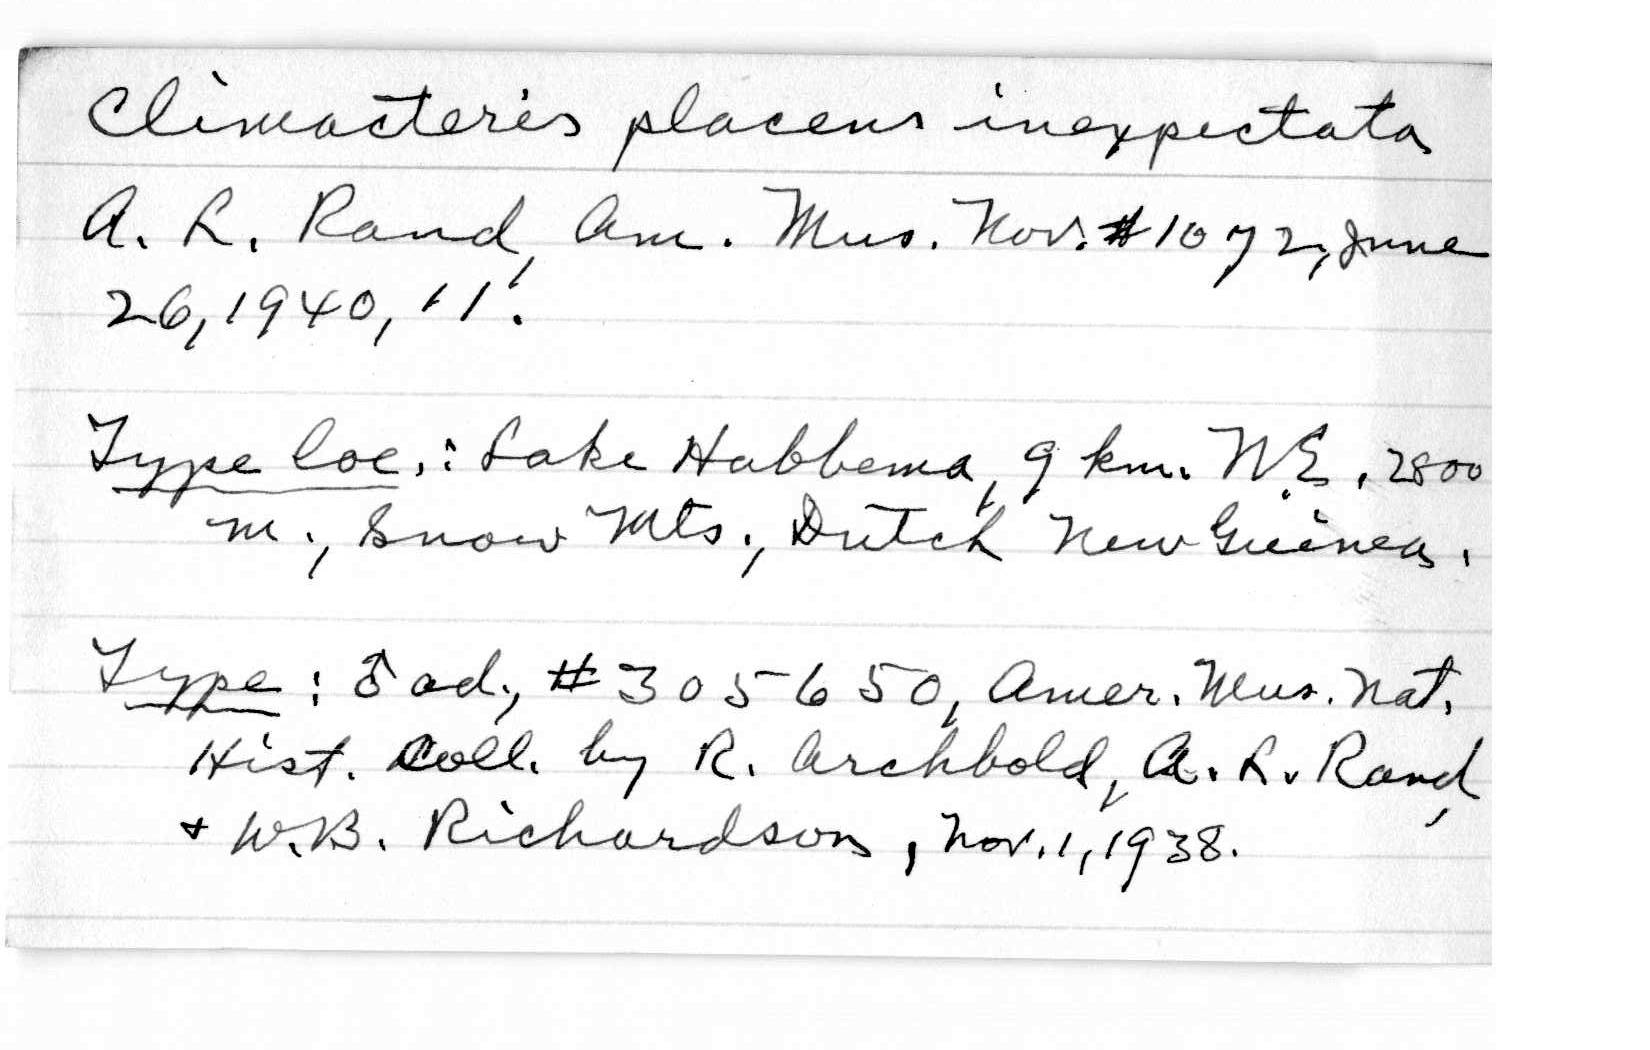 Climacteris placens inexpectata
A. L. Rand, Am. Mus. Nov. #1072, June
26, 1940, 11.
Type loc.: Lake Habbema, 9 km. N.E., 2800
m., Snow Mts., Dutch New Guinea.
Type: ♂ ad., #305650, Amer. Mus. Nat.
Hist. Coll. by R. Archbold, A. L. Rand,
+ W.B. Richardson, Nov. 1, 1938.